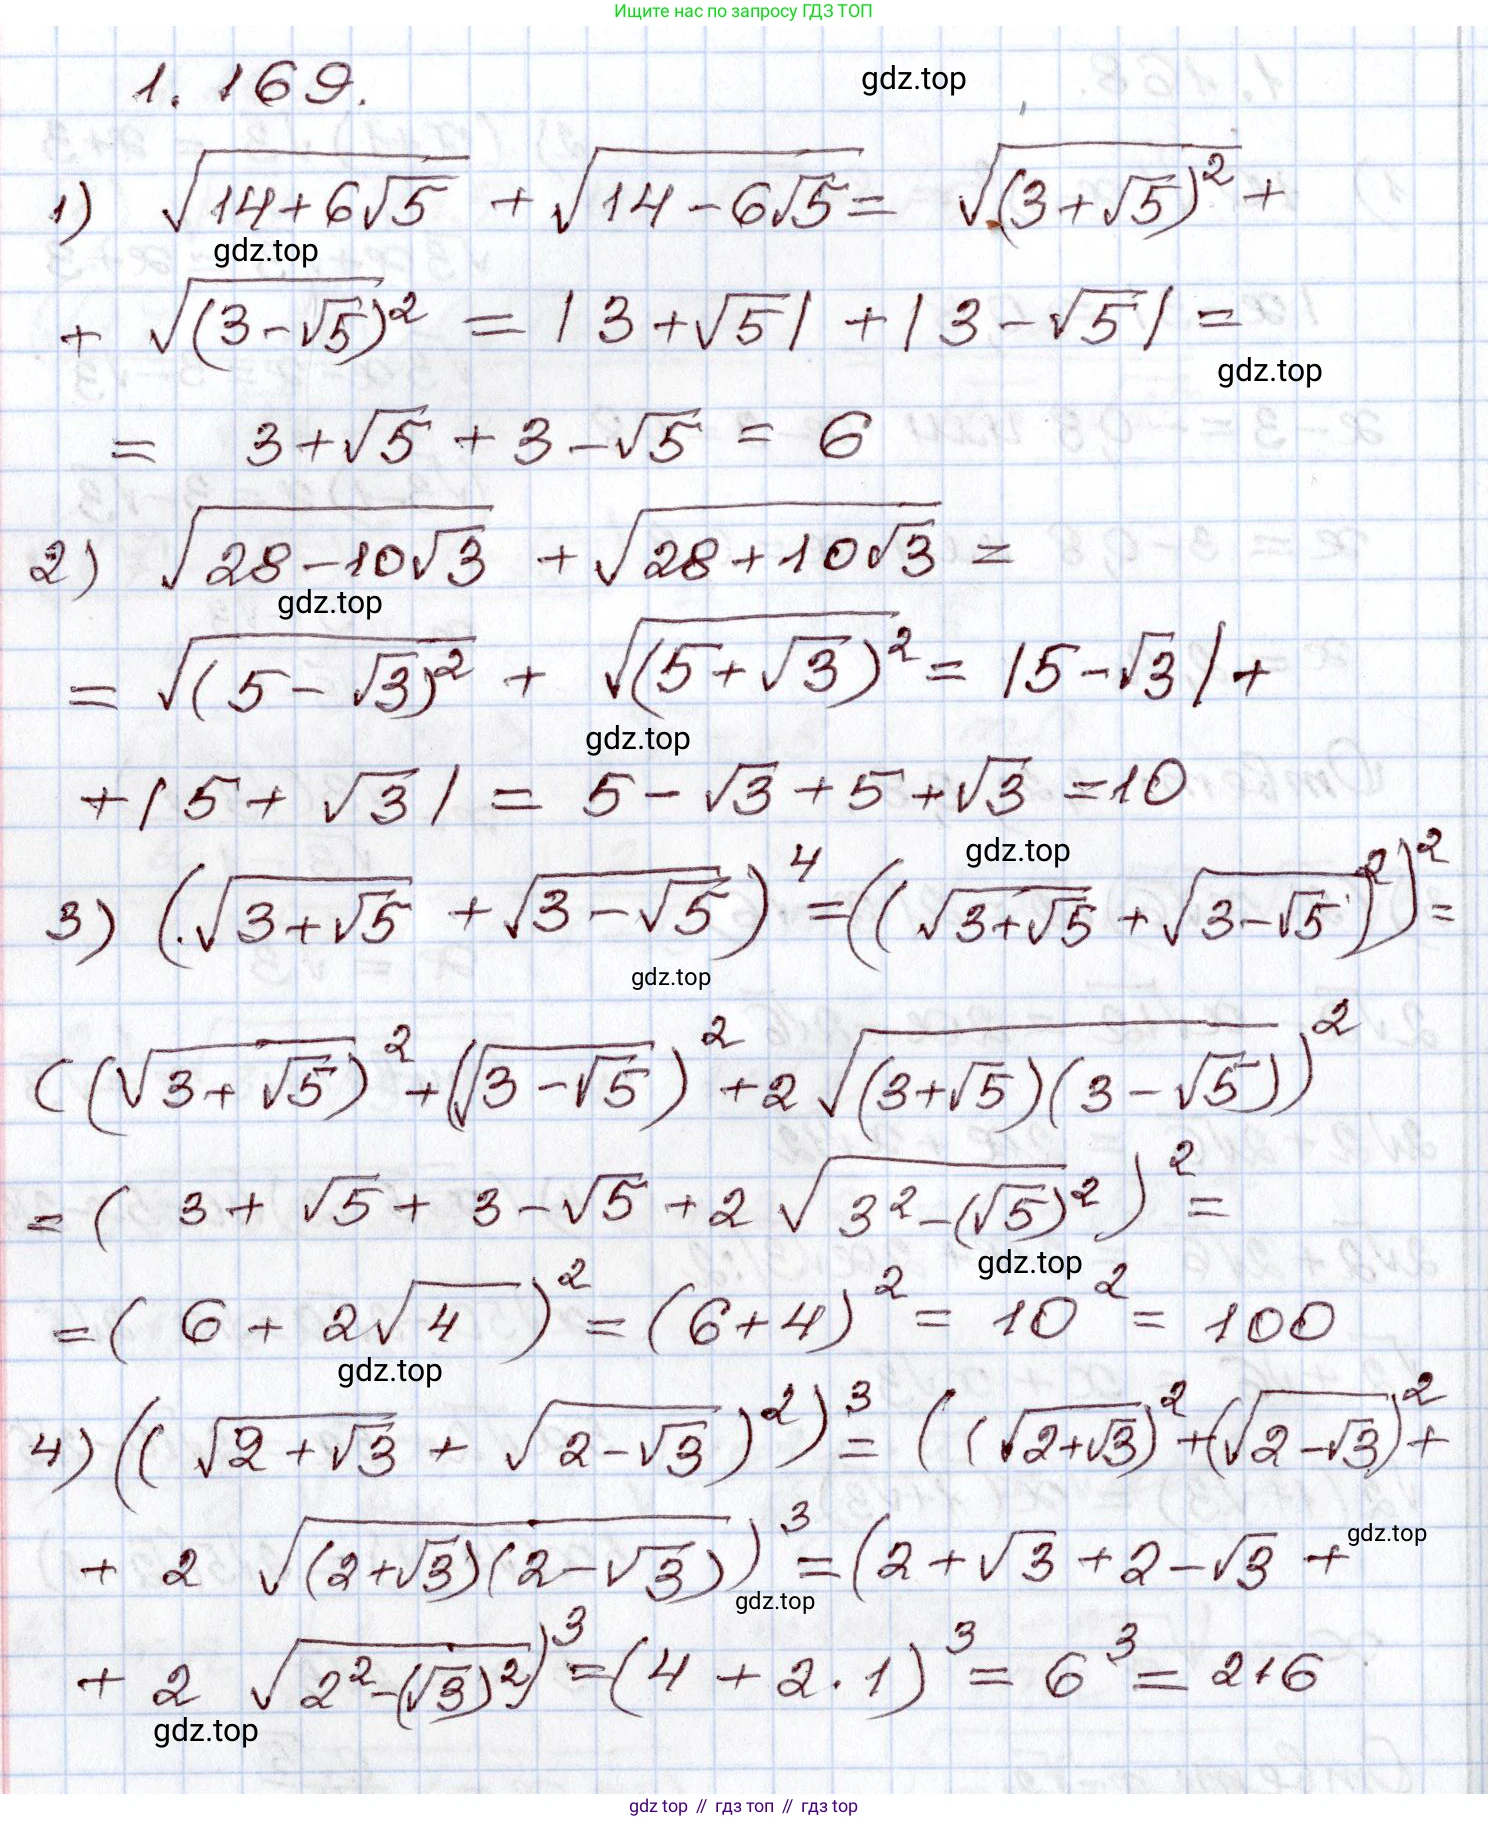 Ищите нас по запросу ГДЗ ТОП
1.169.
gdz.top
1) √(14+6√5) + √(14-6√5) = √((3+√5)²) +
gdz.top
+ √((3-√5)²) = |3+√5| + |3-√5| =
gdz.top
= 3+√5 + 3-√5 = 6
2) √(28-10√3) + √(28+10√3) =
gdz.top
= √((5-√3)²) + √((5+√3)²) = |5-√3| +
gdz.top
+ |5+√3| = 5-√3+5+√3 = 10
gdz.top
3) (√(3+√5) + √(3-√5))⁴ = ((√(3+√5) + √(3-√5))²)² =
gdz.top
((√(3+√5))² + (√(3-√5))² + 2√((3+√5)(3-√5)))²
= (3+√5+3-√5+2√(3²-(√5)²))² =
gdz.top
= (6+2√4)² = (6+4)² = 10² = 100
gdz.top
4) ((√(2+√3) + √(2-√3))²)³ = ((√(2+√3))² + (√(2-√3))² +
gdz.top
+ 2√((2+√3)(2-√3)))³ = (2+√3+2-√3+
gdz.top
+ 2√(2²-(√3)²))³ = (4+2·1)³ = 6³ = 216
gdz.top
gdz top // гдз топ // gdz top